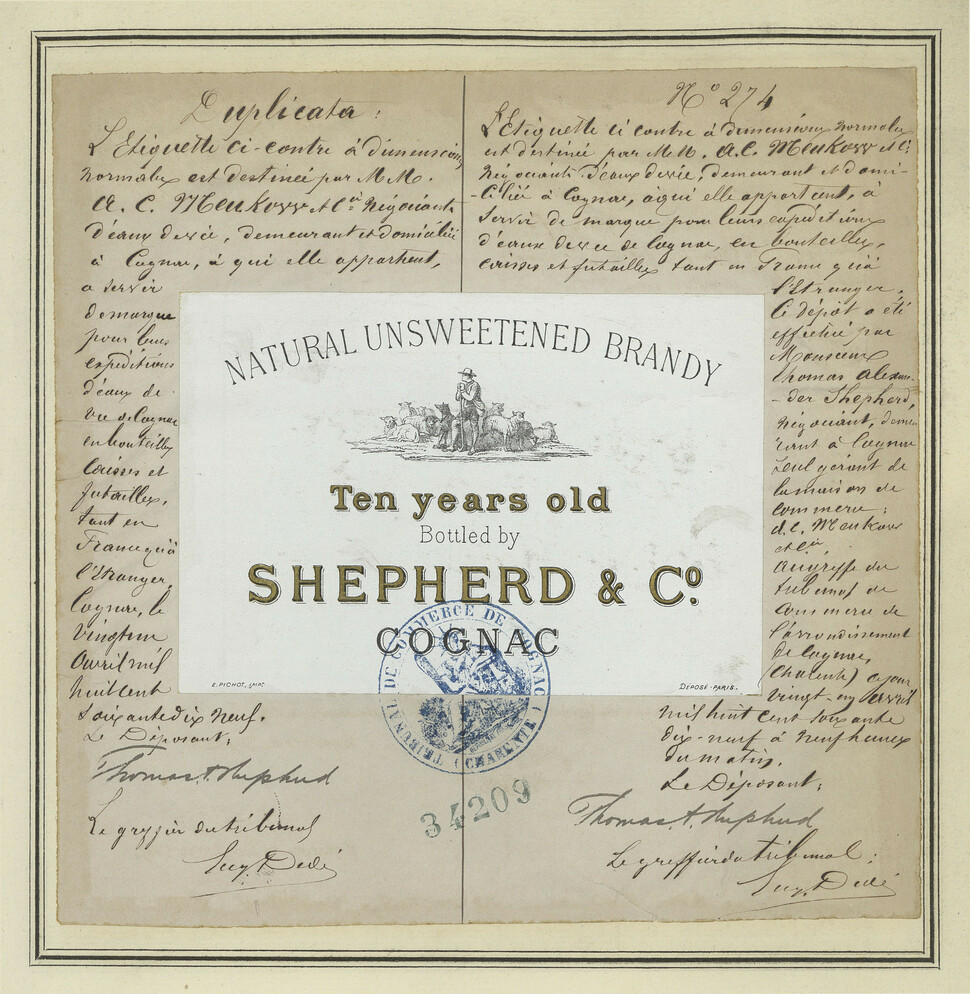 Duplicata:
L'Etiquette ci-contre à dimensions
normales est destinée par M.M.
A. C. Meukow et Cie Négociants
d'eaux de vie, demeurant et domicilié
à Cognac, à qui elle appartient,
a servir
de marque
pour leurs
expéditions
d'eaux de
vie de Cognac
en bouteilles
Caisses et
futailles,
tant en
France qu'à
l'Etranger.
Cognac, le
vingt un
Avril mil
huit cent
soixante dix neuf.
Le Déposant;
Thomas A Shepherd
Le greffier du tribunal
Eug. Dedé
No 274
L'Etiquette ci contre à dimensions normales
est destinée par M.M. A.C. Meukow et Cie
Négociants d'eaux de vie, demeurant et domi-
-cilié à Cognac, à qui elle appartient, à
servir de marque pour leurs expéditions
d'eaux de vie de Cognac, en bouteilles,
caisses et futailles tant en France qu'à
l'Etranger.
Ce dépôt a été
effectué par
Monsieur
Thomas Alexan-
-der Shepherd,
négociant, demeu
rant à Cognac
seul gérant de
la maison de
commerce:
A. C. Meukow
et Cie.
Au greffe du
tribunal de
commerce de
l'arrondissement
de Cognac,
(Charente) ce jour
vingt-un Avril
mil huit cent soixante
dix-neuf à neuf heures
du matin.
Le Déposant;
Thomas A Shepherd
Le greffier du tribunal:
Eug. Dedé
NATURAL UNSWEETENED BRANDY
Ten years old
Bottled by
SHEPHERD & Co.
COGNAC
E. PICHOT, IMP.
DÉPOSÉ-PARIS.
TRIBUNAL DE COMMERCE DE COGNAC
(CHARENTE)
34209